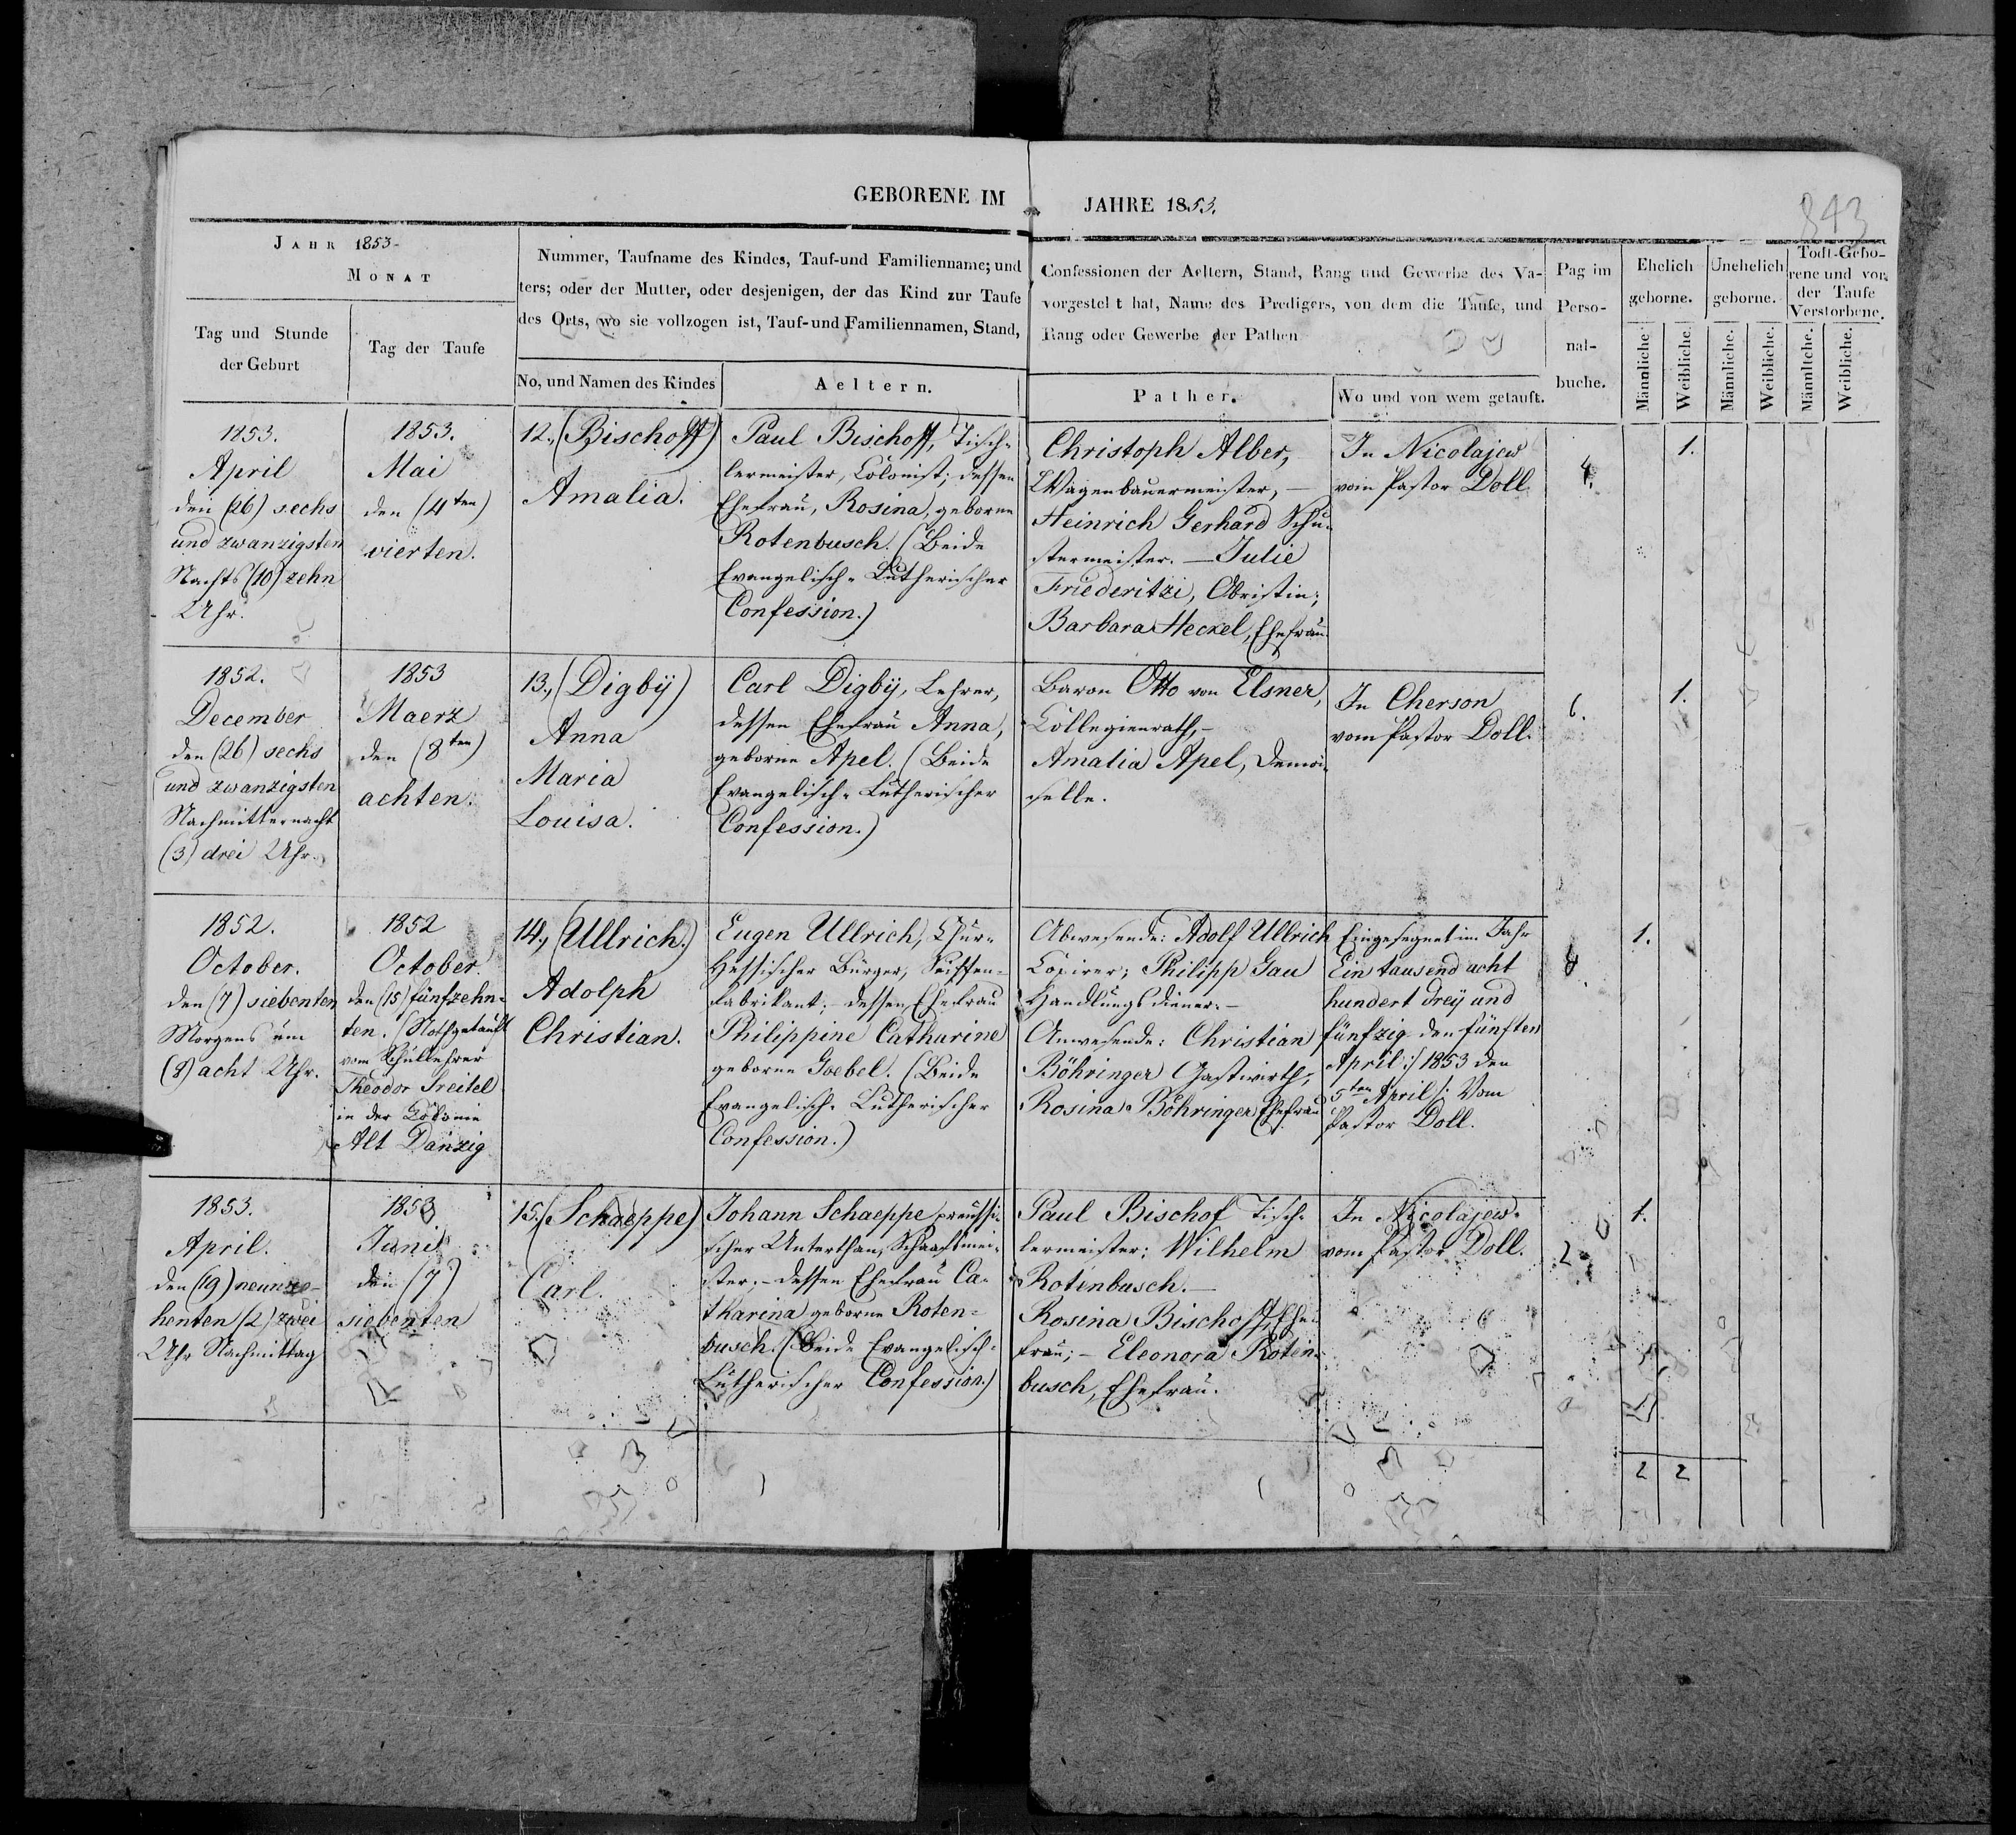 GEBORENE IM JAHRE 1853.
843
JAHR 1853.
MONAT
Tag und Stunde
der Geburt
Tag der Taufe
Nummer, Taufname des Kindes, Tauf-und Familienname; und
ters; oder der Mutter, oder desjenigen, der das Kind zur Taufe
des Orts, wo sie vollzogen ist, Tauf-und Familiennamen, Stand,
No, und Namen des Kindes
Aeltern.
Confessionen der Aeltern, Stand, Rang und Gewerbe des Va-
vorgestellt hat, Name des Predigers, von dem die Taufe, und
Rang oder Gewerbe der Pathen
Pather.
Wo und von wem getauft.
Pag im
Perso-
nal-
buche.
Ehelich
geborne.
Unehelich
geborne.
Todt-Gebo-
rene und vor
der Taufe
Verstorbene.
Männliche.
Weibliche.
Männliche.
Weibliche.
Männliche.
Weibliche.
1853.
April
den (26) sechs
und zwanzigsten
Nachts (10) zehn
Uhr.
1853.
Mai
den (4ten)
vierten.
12., (Bischoff)
Amalia.
Paul Bischoff, Tisch-
lermeister, Colonist; dessen
Ehefrau, Rosina, geborne
Rotenbusch. (Beide
Evangelisch-Lutherischer
Confession.)
Christoph Alber,
Wagenbauermeister, –
Heinrich Gerhard Schu-
stermeister. – Julie
Friederitzi, Obristin;
Barbara Heckel, Ehefrau.
In Nicolajew
vom Pastor Doll.
4.
1.
1852.
December
den (26) sechs
und zwanzigsten
Nachmitternacht
(3) drei Uhr.
1853
Maerz
den (8ten)
achten.
13., (Digbÿ)
Anna
Maria
Louisa.
Carl Digbÿ, Lehrer,
dessen Ehefrau Anna,
geborne Apel. (Beide
Evangelisch-Lutherischer
Confession.)
Baron Otto von Elsner,
Collegienrath, –
Amalia Apel, Demoi-
selle.
In Cherson
vom Pastor Doll.
6.
1.
1852.
October.
den (7) siebenten
Morgens um
(8) acht Uhr.
1852
October.
den (15) fünfzehn-
ten. (Nothgetauft
vom Schullehrer
Theodor Treitel
in der Colonie
Alt Danzig
14., (Ullrich.)
Adolph
Christian.
Eugen Ullrich, Chur-
Hessischer Bürger, Seiffen-
fabrikant; dessen Ehefrau
Philippine Catharine
geborne Goebel. (Beide
Evangelisch-Lutherischer
Confession.)
Abwesende: Adolf Ullrich
Copirer; Philipp Gau
Handlungsdiener. –
Anwesende: Christian
Böhringer Gastwirth;
Rosina Böhringer Ehefrau
Eingesegnet im Jahr
Ein tausend acht
hundert dreÿ und
fünfzig den fünften
April :/ 1853 den
5ten April /: Vom
Pastor Doll.
8.
1.
1853.
April.
den (19) neunze-
henten (2) zwei
Uhr Nachmittag
1853
Juni
den (7)
siebenten
15., (Schaeppe)
Carl.
Johann Schaeppe preussi-
scher Unterthan, Schaafmei-
ster, – dessen Ehefrau Ca-
tharina geborne Roten-
busch. (Beide Evangelisch-
Lutherischer Confession.)
Paul Bischof Tisch-
lermeister; Wilhelm
Rotenbusch. –
Rosina Bischoff, Ehe-
frau; – Eleonora Roten-
busch, Ehefrau.
In Nicolajew.
vom Pastor Doll.
2
1.
2 2